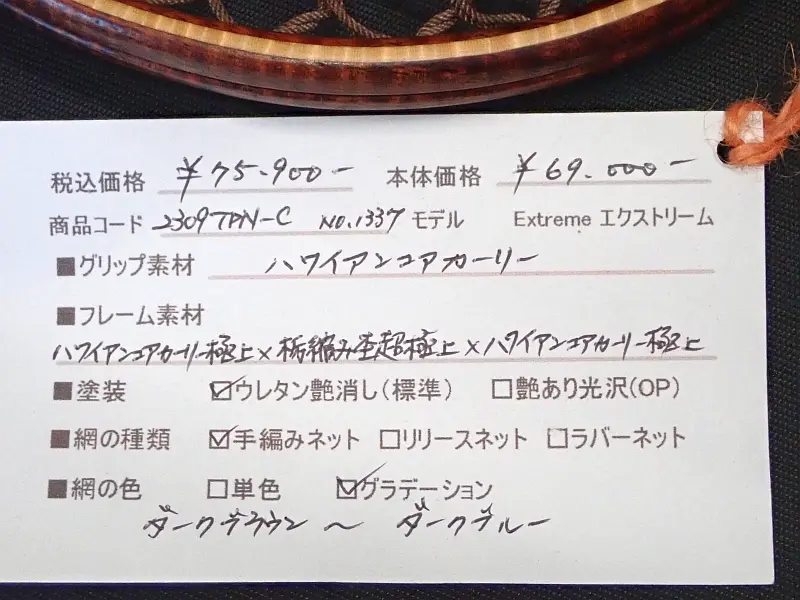 税込価格 ¥75.900- 本体価格 ¥69.000-
商品コード 2309TPN-C NO.1337 モデル Extreme エクストリーム
■グリップ素材 ハワイアンコアカーリー
■フレーム素材
ハワイアンコアカーリー極上×栃縮み杢超極上×ハワイアンコアカーリー極上
■塗装 ☑ウレタン艶消し(標準) □艶あり光沢(OP)
■網の種類 ☑手編みネット □リリースネット □ラバーネット
■網の色 □単色 ☑グラデーション
ダークブラウン ～ ダークブルー